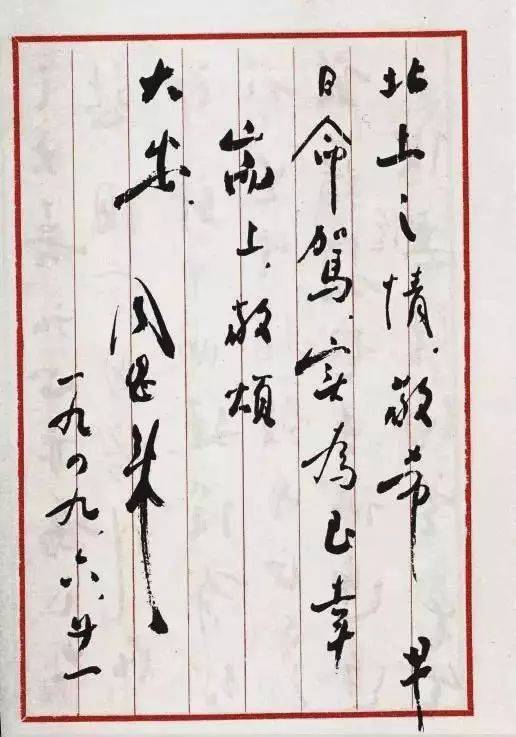 北上之情.敬希早
日命駕.实为至幸
耑上.敬頌
大安.
周恩来
一九四九.六.廿一